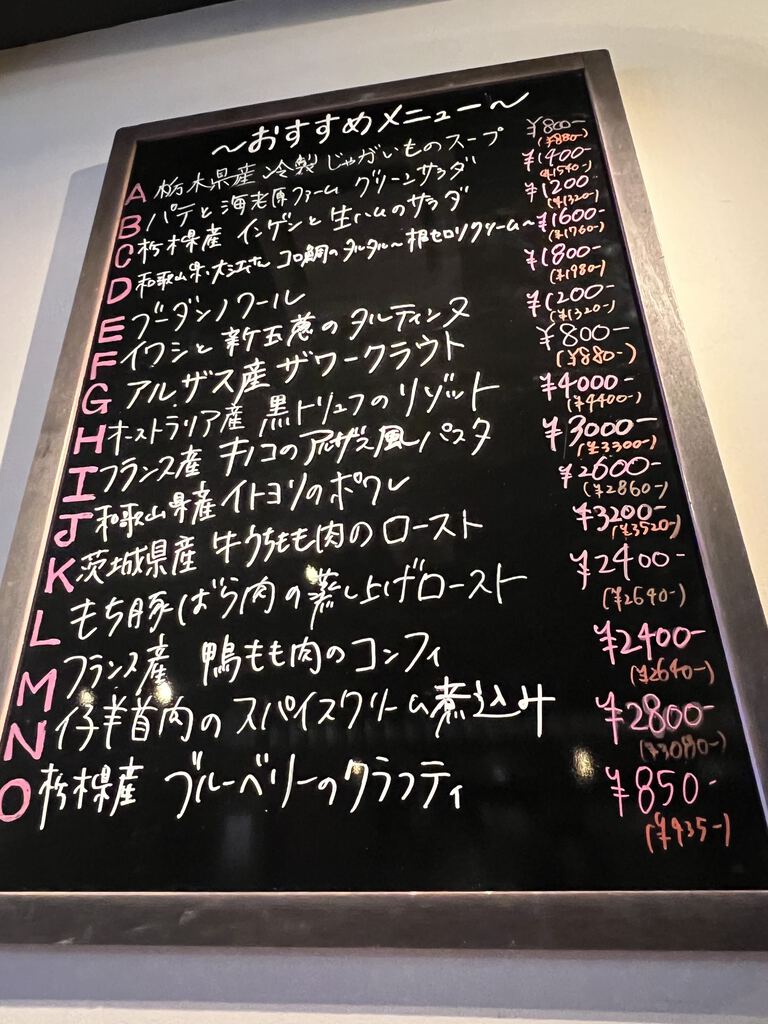 ～おすすめメニュー～
A 栃木県産 冷製じゃがいものスープ ¥800- (¥880-)
B パテと海老原ファーム グリーンサラダ ¥1400- (¥1540-)
C 栃木県産 インゲンと生ハムのサラダ ¥1200- (¥1320-)
D 和歌山県・大江さん コロ鯛のタルタル～根セロリクリーム～ ¥1600- (¥1760-)
E ブーダンノワール ¥1800- (¥1980-)
F イワシと新玉葱のタルティンヌ ¥1200- (¥1320-)
G アルザス産 ザワークラウト ¥800- (¥880-)
H オーストラリア産 黒トリュフのリゾット ¥4000- (¥4400-)
I フランス産 キノコのアルザス風パスタ ¥3000- (¥3300-)
J 和歌山県産 イトヨリのポワレ ¥2600- (¥2860-)
K 茨城県産 牛うちもも肉のロースト ¥3200- (¥3520-)
L もち豚ばら肉の蒸し上げロースト ¥2400- (¥2640-)
M フランス産 鴨もも肉のコンフィ ¥2400- (¥2640-)
N 仔羊首肉のスパイスクリーム煮込み ¥2800- (¥3080-)
O 栃木県産 ブルーベリーのクラフティ ¥850- (¥935-)